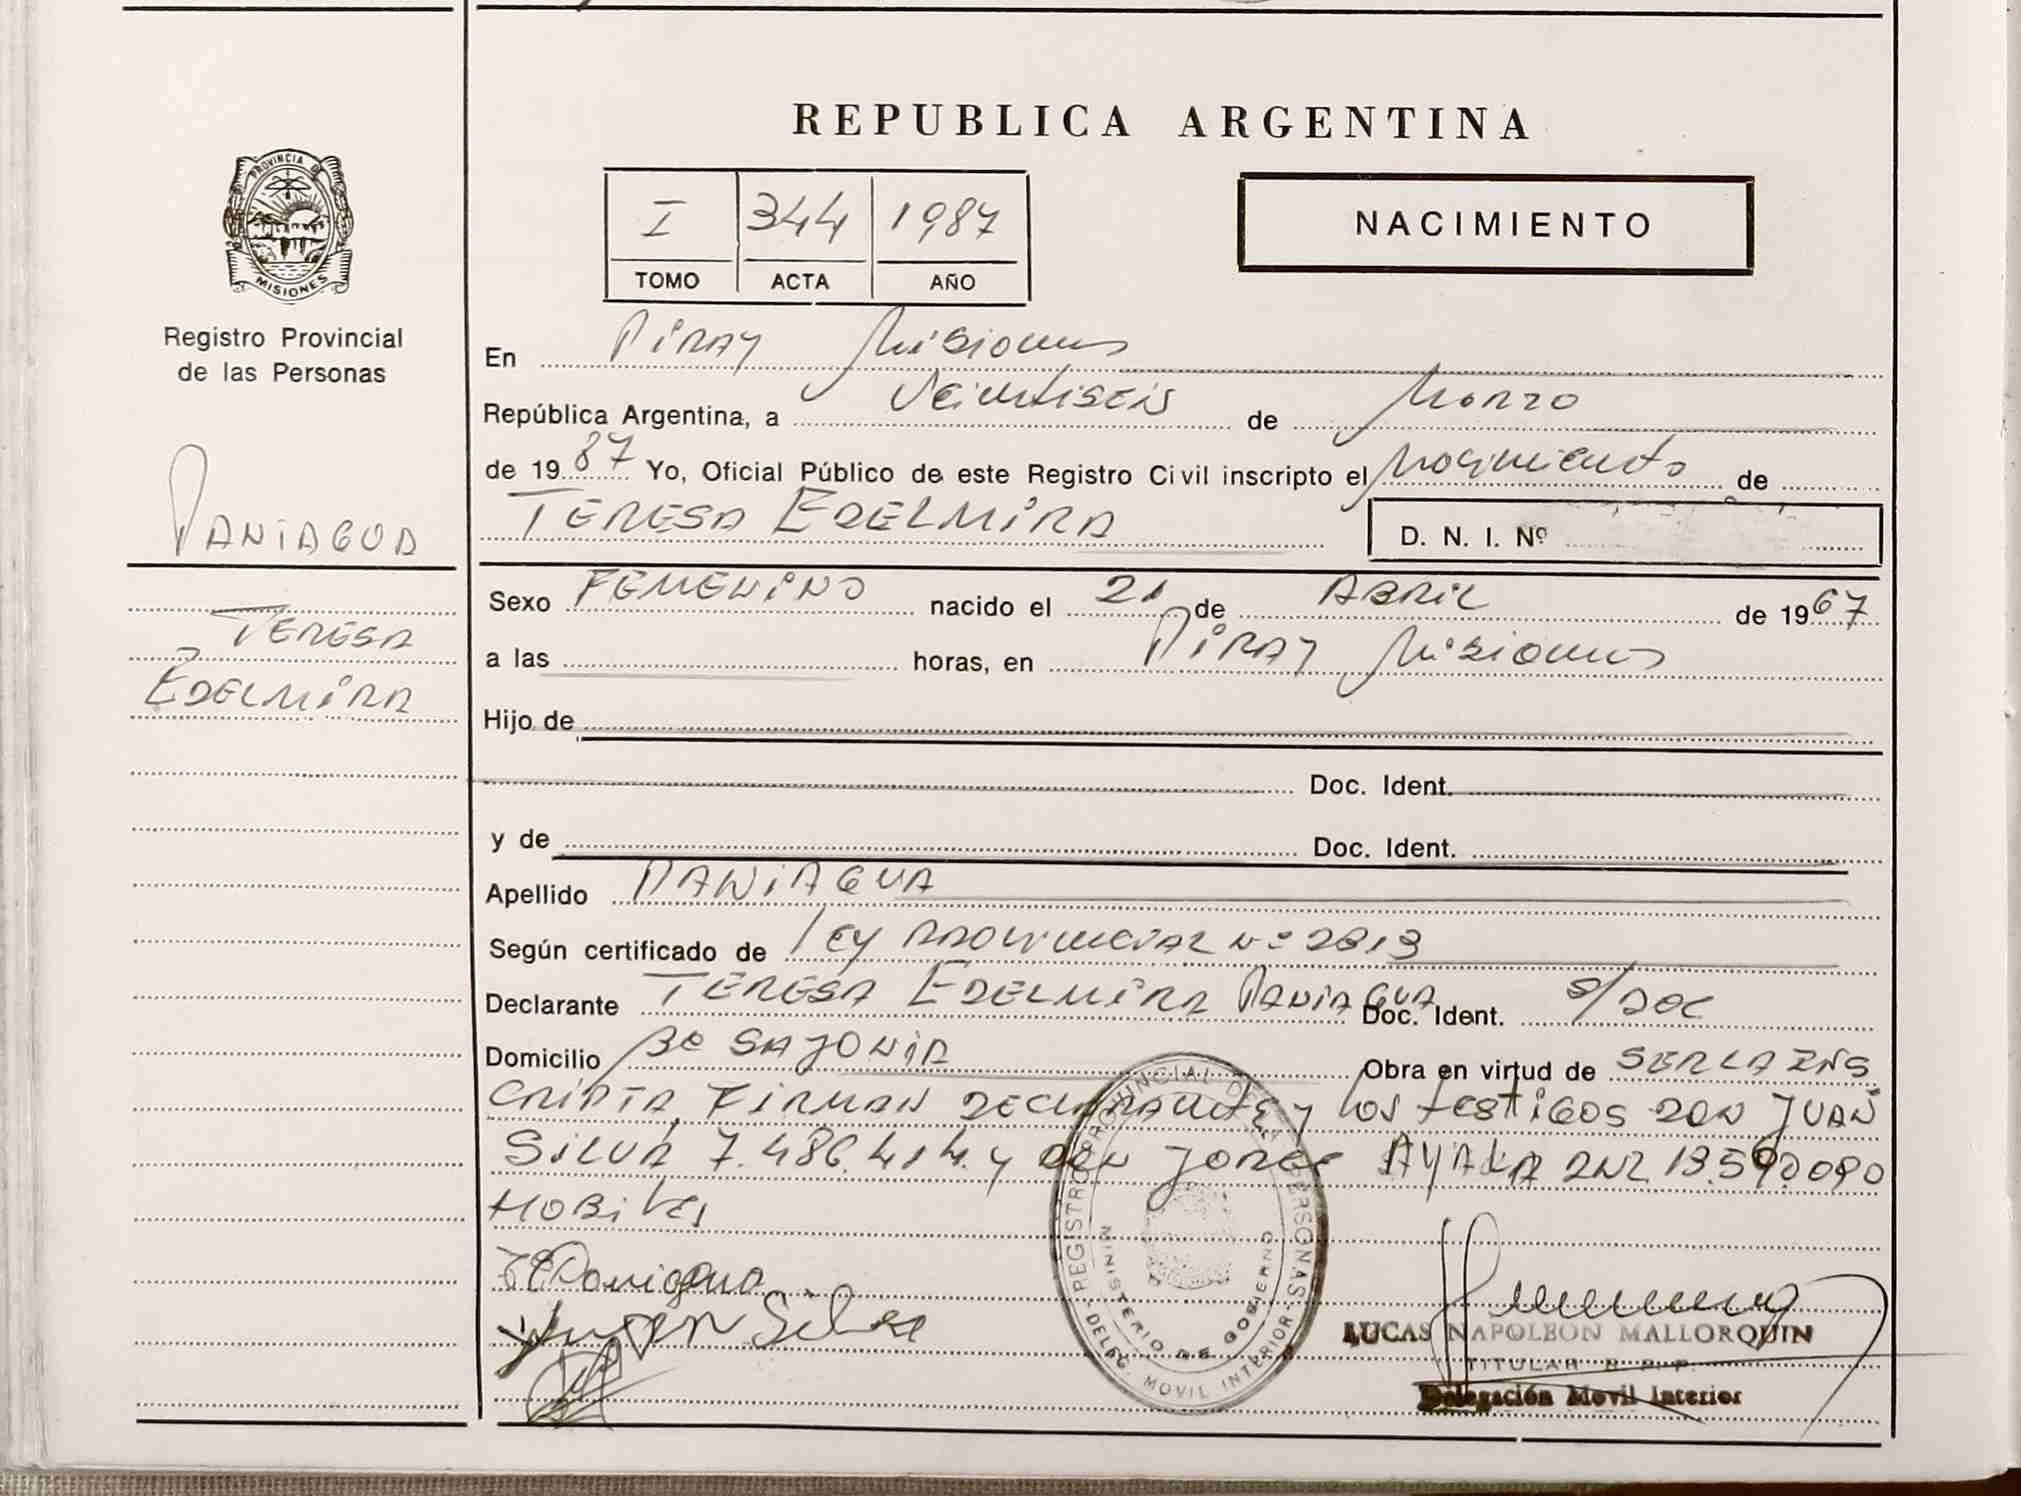 REPUBLICA ARGENTINA
PROVINCIA DE
MISIONES
Registro Provincial
de las Personas
PANIAGUA
TERESA
EDELMIRA
I 344 1987
TOMO ACTA AÑO
NACIMIENTO
En Piray Misiones
República Argentina, a Veintiseis de Marzo
de 1987 Yo, Oficial Público de este Registro Civil inscripto el Nacimiento de
TERESA EDELMIRA D. N. I. Nº
Sexo FEMENINO nacido el 21 de ABRIL de 1967
a las horas, en Piray Misiones
Hijo de
Doc. Ident.
y de Doc. Ident.
Apellido PANIAGUA
Según certificado de Ley Provincial Nº 2313
Declarante TERESA EDELMIRA PANIAGUA Doc. Ident. S/DOC
Domicilio Bº SAJONIA Obra en virtud de SER LA INS
CRIPTA, FIRMAN DECLARANTE y los testigos DON JUAN
SILVA 7.486.414 y DON JORGE AYALA DNI 13.590.090
HOBiles
Juan Silva
REGISTRO PROVINCIAL DE LAS PERSONAS
MINISTERIO DE GOBIERNO
DELEG. MOVIL INTERIOR
LUCAS NAPOLEON MALLORQUIN
TITULAR R. P. P.
Delegación Movil Interior